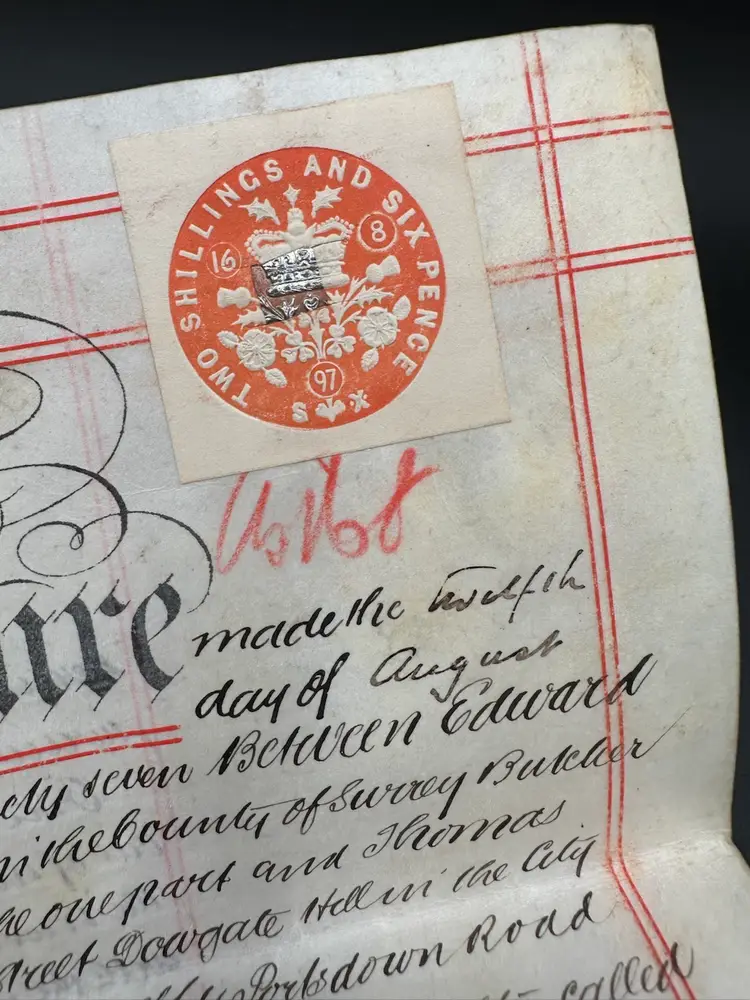 TWO SHILLINGS AND SIX PENCE
16
8
97
S
made the twelfth
day of August
seven Between Edward
in the County of Surrey Butcher
one part and Thomas
Dowgate Hill in the City
Portsdown Road
called